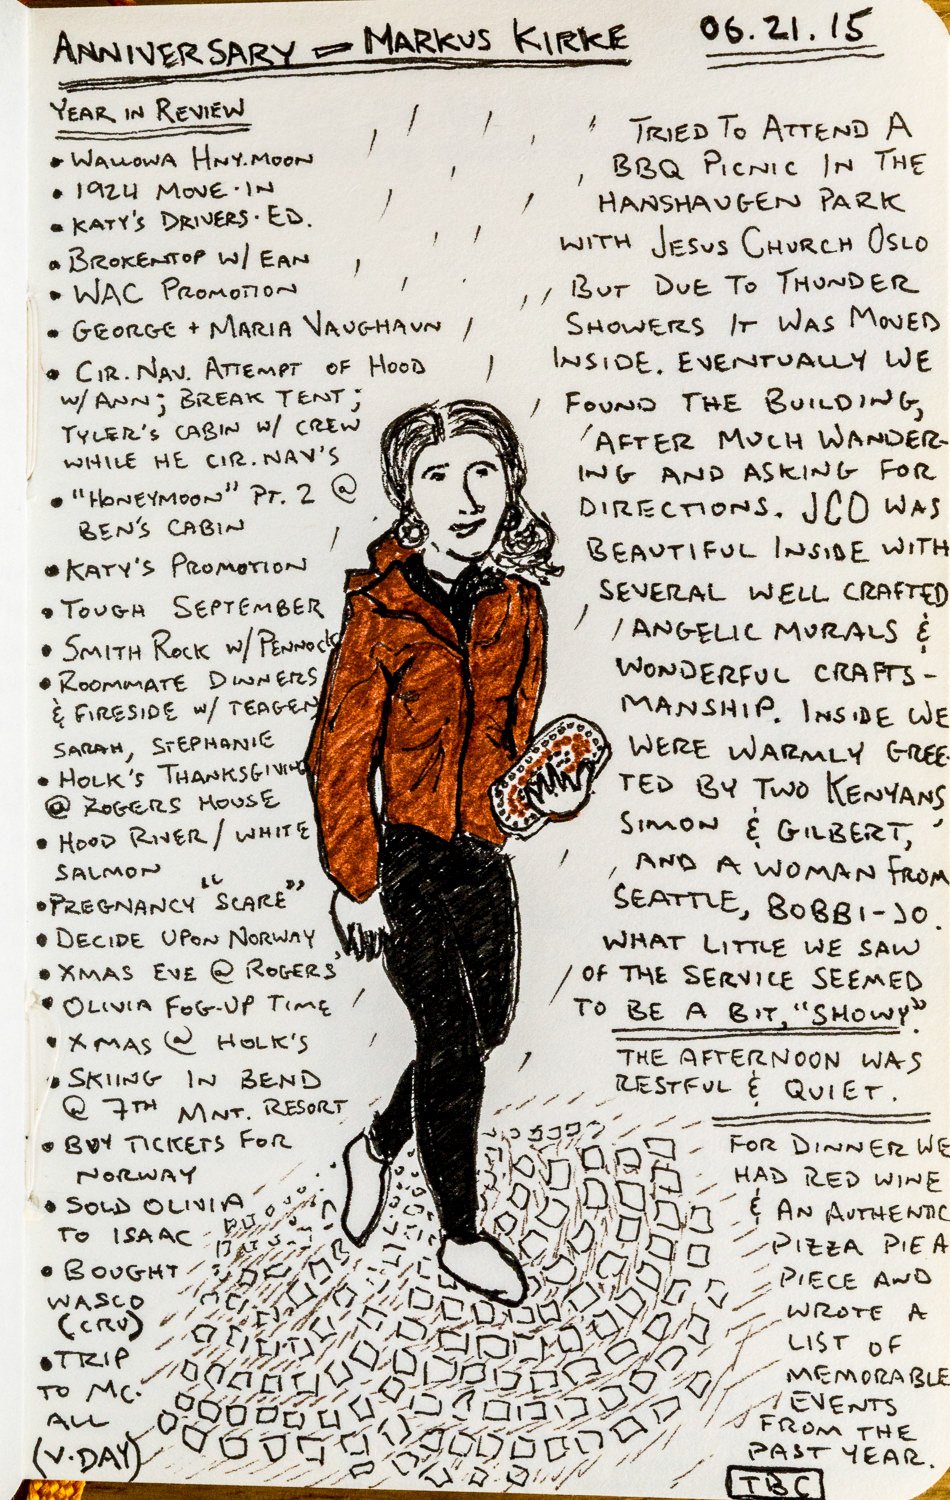 ANNIVERSARY – MARKUS KIRKE
06.21.15
YEAR IN REVIEW
• WALLOWA HNY.MOON
• 1924 MOVE-IN
• KATY'S DRIVERS-ED.
• BROKENTOP W/ EAN
• WAC PROMOTION
• GEORGE + MARIA VAUGHAUN
• CIR. NAV. ATTEMPT OF HOOD
W/ ANN; BREAK TENT;
TYLER'S CABIN W/ CREW
WHILE HE CIR. NAV'S
• "HONEYMOON" PT. 2 @
BEN'S CABIN
• KATY'S PROMOTION
• TOUGH SEPTEMBER
• SMITH ROCK W/ PENNOCK
• ROOMMATE DINNERS
& FIRESIDE W/ TEAGEN
SARAH, STEPHANIE
• HOLK'S THANKSGIVING
@ ROGERS HOUSE
• HOOD RIVER / WHITE
SALMON
• PREGNANCY "SCARE"
• DECIDE UPON NORWAY
• XMAS EVE @ ROGERS'
• OLIVIA FOG-UP TIME
• XMAS @ HOLK'S
• SKIING IN BEND
@ 7TH MNT. RESORT
• BUY TICKETS FOR
NORWAY
• SOLD OLIVIA
TO ISAAC
• BOUGHT
WASCO
(CRV)
• TRIP
TO MC.
ALL
(V-DAY)
TRIED TO ATTEND A
BBQ PICNIC IN THE
HANSHAUGEN PARK
WITH JESUS CHURCH OSLO
BUT DUE TO THUNDER
SHOWERS IT WAS MOVED
INSIDE. EVENTUALLY WE
FOUND THE BUILDING,
AFTER MUCH WANDER-
ING AND ASKING FOR
DIRECTIONS. JCO WAS
BEAUTIFUL INSIDE WITH
SEVERAL WELL CRAFTED
ANGELIC MURALS &
WONDERFUL CRAFTS-
MANSHIP. INSIDE WE
WERE WARMLY GREE-
TED BY TWO KENYANS
SIMON & GILBERT,
AND A WOMAN FROM
SEATTLE, BOBBI-JO.
WHAT LITTLE WE SAW
OF THE SERVICE SEEMED
TO BE A BIT, "SHOWY"
THE AFTERNOON WAS
RESTFUL & QUIET.
FOR DINNER WE
HAD RED WINE
& AN AUTHENTIC
PIZZA PIE A
PIECE AND
WROTE A
LIST OF
MEMORABLE
EVENTS
FROM THE
PAST YEAR.
TBC